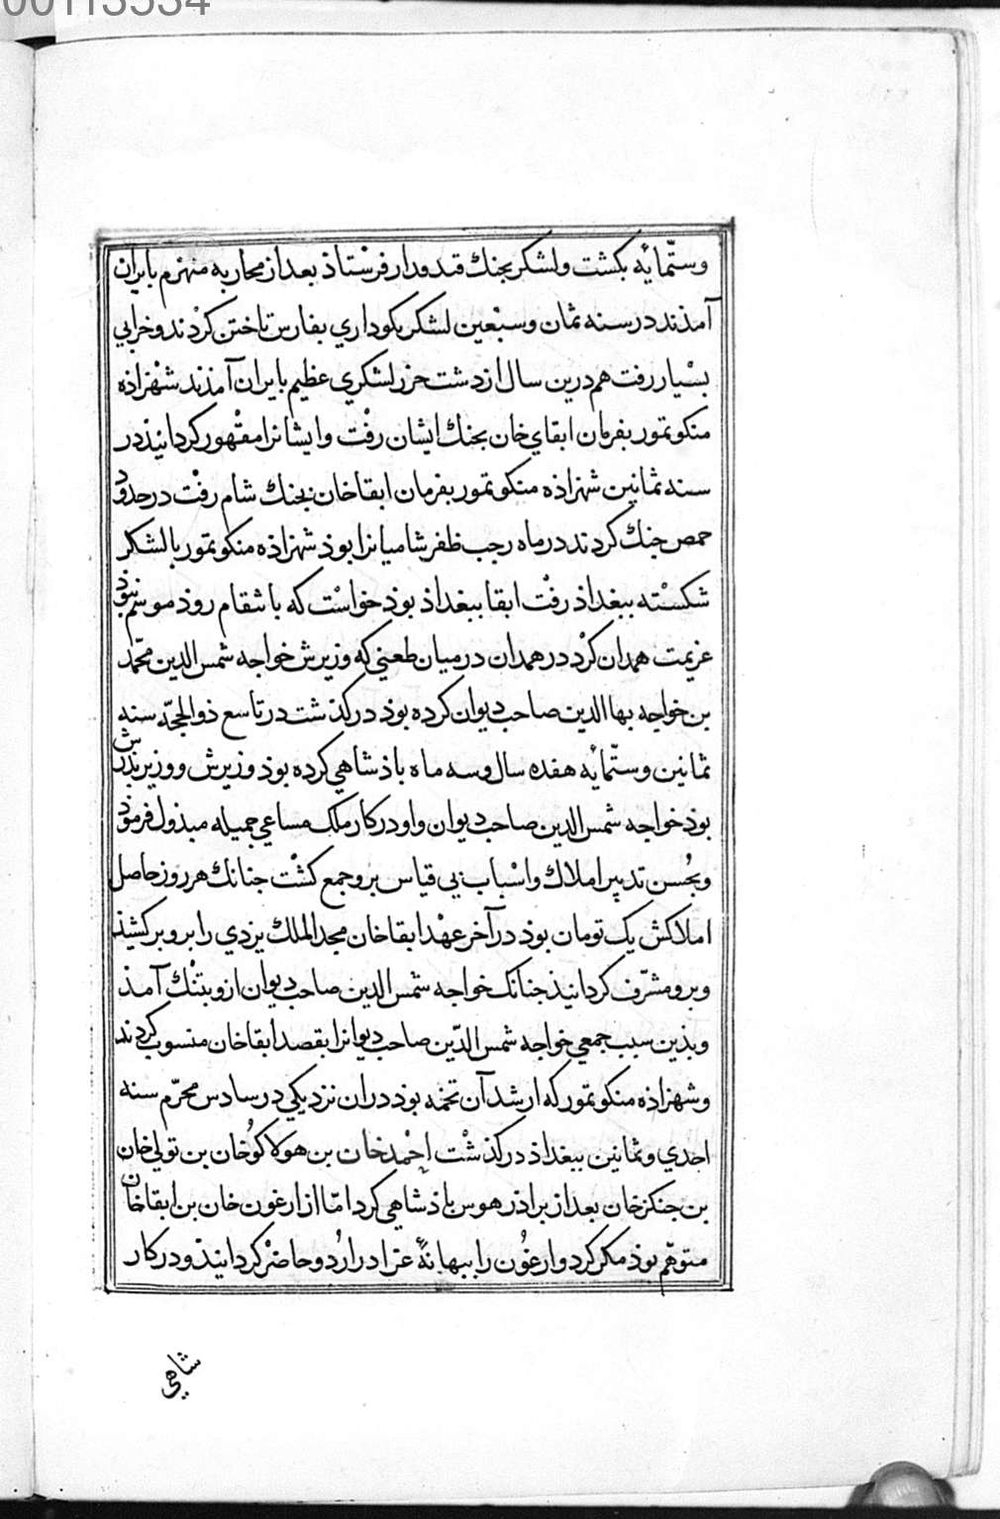 00113534
وستّمائه بکشت ولشکر بجنك قندودار فرستاذ بعد از محاربه منهزم بایران
آمذند در سنه ثمان وسبعین لشکر بکوداري بفارس تاختن کردند وخرابي
بسیار رفت هم درین سال از دشت خزر لشکري عظیم بایران آمذند شهزاذه
منکوتمور بفرمان ابقاي خان بجنك ایشان رفت وایشانرا مقهور کردانیذ در
سنه ثمانین شهزاذه منکوتمور بفرمان ابقاخان بجنك شام رفت در حدود
حمص جنك کردند در ماه رجب ظفر شامیانرا بوذ شهزاذه منکوتمور با لشکر
شکسته ببغداذ رفت ابقا ببغداذ بوذ خواست که باشقام روذ موسم نبوذ
عزیمت همدان کرد در همدان در میان طعني که وزیرش خواجه شمس الدین محمّد
بن خواجه بها الدین صاحب دیوان کرده بوذ درکذشت در تاسع ذو الحجّه سنه
ثمانین وستّمایه هفده سال وسه ماه باذشاهي کرده بوذ وزیرش ووزیر بذرش
بوذ خواجه شمس الدین صاحب دیوان واو در کار ملک مساعي جمیله مبذول فرموذ
وبحُسن تدبیر املاك واسْباب بي قیاس برو جمع کشْت جنانك هر روز حاصل
املاکش یک تومان بوذ در آخر عهْد ابقاخان مجد الملك یزدي را برو برکشیذ
وبرو مشرّف کردانیذ جنانک خواجه شمس الدین صاحب دیوان ازو بتنْك آمذ
وبذین سبب جمعي خواجه شمس الدّین صاحب دیوانرا بقصد ابقاخان منسوب کردند
وشهزاذه منکوتمور که ارشد آن تخمه بوذ دران نزدیکي در سادس محرّم سنه
احدي وثمانین ببغداذ درکذشْت احْمد خان بن هولاکوُخان بن تولي خان
بن جنکزخان بعد از براذر هوس باذشاهي کرد امّا از ارغون خان بن ابقاخان
متوهّم بوذ مکر کرد وارغوُن را ببهانهٔ عزا در ارُدو حاضرْ کردانیذ ودر کار
شاهي